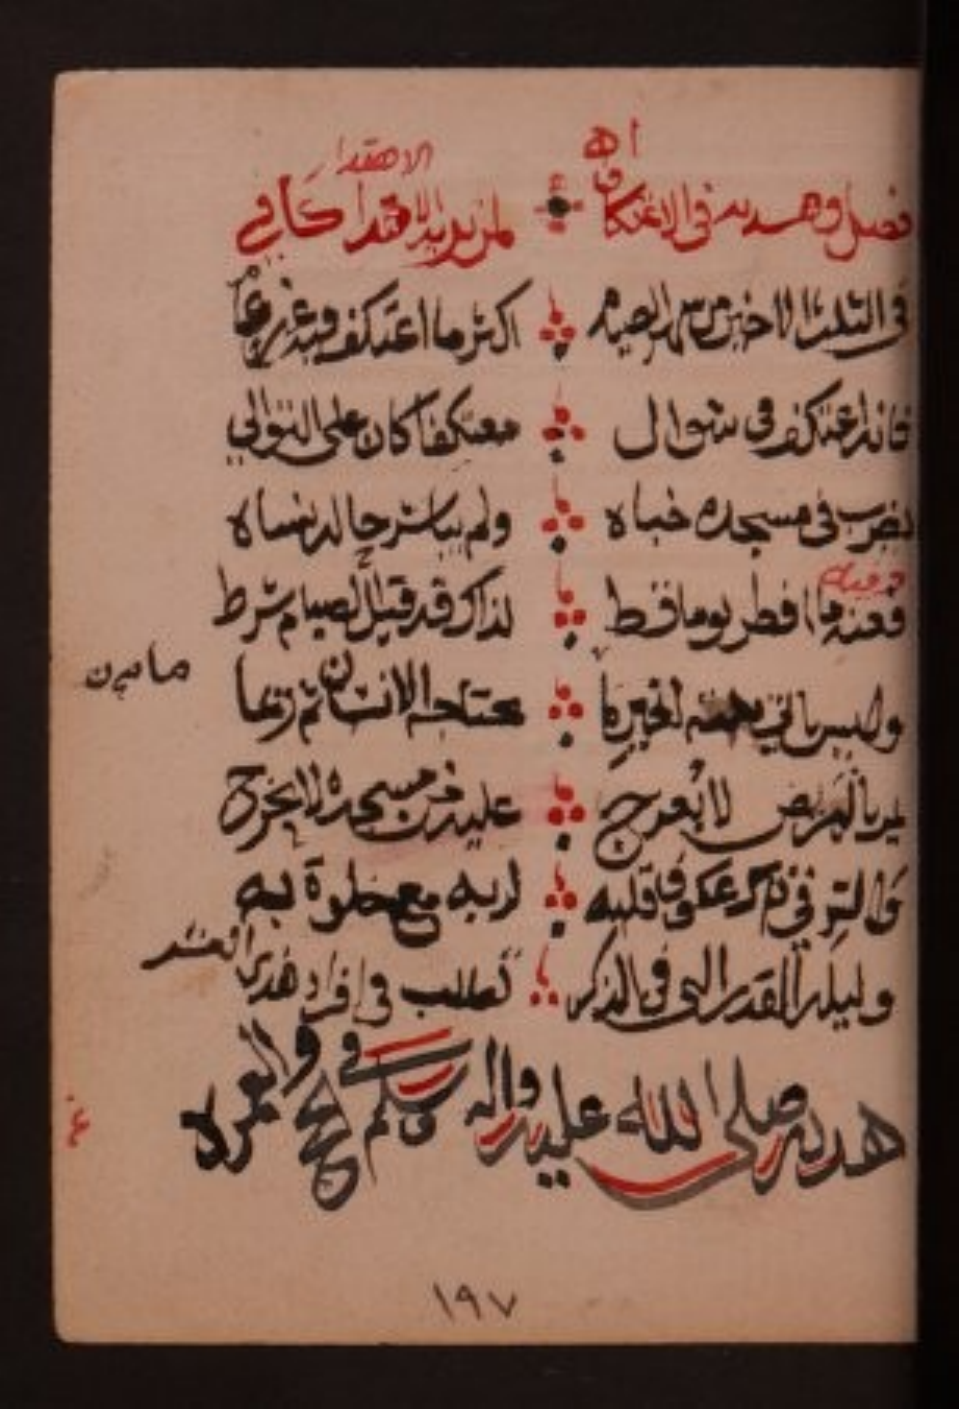 اه
الاهتدا
فصل وهديه في الاعتكاف لمن يريد الاقتدا كافي
في الثلث الاخير من شهر الصيام اكثر ما اعتكف فيه
فانه اعتكف في شوال معتكفا كان على التوالي
يضرب في مسجده خباه ولم يباشر حالة نساه
فعنه ما افطر يوما قط لذاك قد قيل الصيام شرط
وليس ياتي بيته لغير ما يحتاجه الانسان ثم ربما
يمر بالمريض لا يعرج عليه من مسجده لا يخرج
والسر في ذكر عكوف قلبه لربه مع خلوة به
وليلة القدر التي في الذكر تطلب في افراد هذي العشر
هديه صلى الله عليه واله وسلم في الحج والعمره
١٩٧